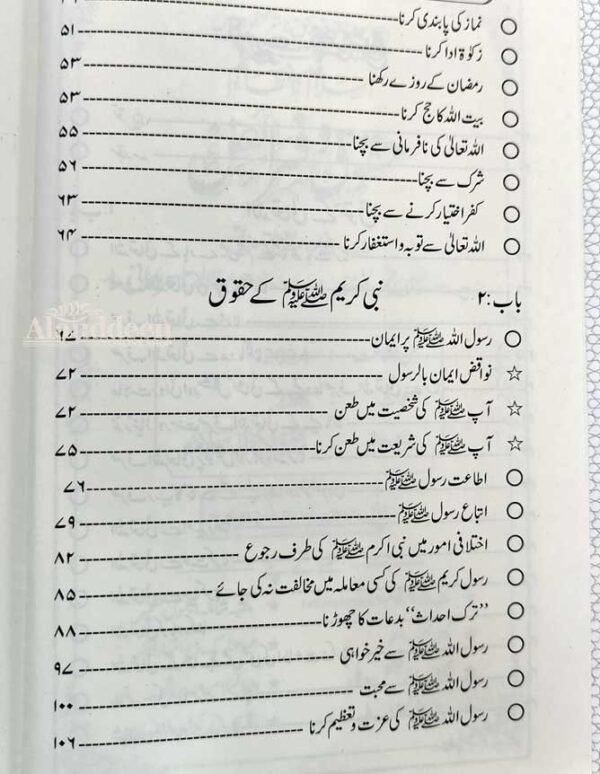 نماز کی پابندی کرنا
زکوٰۃ ادا کرنا ۵۱
رمضان کے روزے رکھنا ۵۳
بیت اللہ کا حج کرنا ۵۳
اللہ تعالیٰ کی نافرمانی سے بچنا ۵۵
شرک سے بچنا ۵۶
کفر اختیار کرنے سے بچنا ۶۳
اللہ تعالیٰ سے توبہ و استغفار کرنا ۶۴
باب:۲ نبی کریم ﷺ کے حقوق
رسول اللہ ﷺ پر ایمان ۶۷
نواقض ایمان بالرسول ۷۲
آپ ﷺ کی شخصیت میں طعن ۷۲
آپ ﷺ کی شریعت میں طعن کرنا ۷۵
اطاعت رسول ﷺ ۷۶
اتباع رسول ﷺ ۷۹
اختلافی امور میں نبی اکرم ﷺ کی طرف رجوع ۸۲
رسول کریم ﷺ کی کسی معاملہ میں مخالفت نہ کی جائے ۸۵
”ترک احداث“ بدعات کا چھوڑنا ۸۸
رسول اللہ ﷺ سے خیر خواہی ۹۷
رسول اللہ ﷺ سے محبت ۱۰۰
رسول اللہ ﷺ کی عزت و تعظیم کرنا ۱۰۶